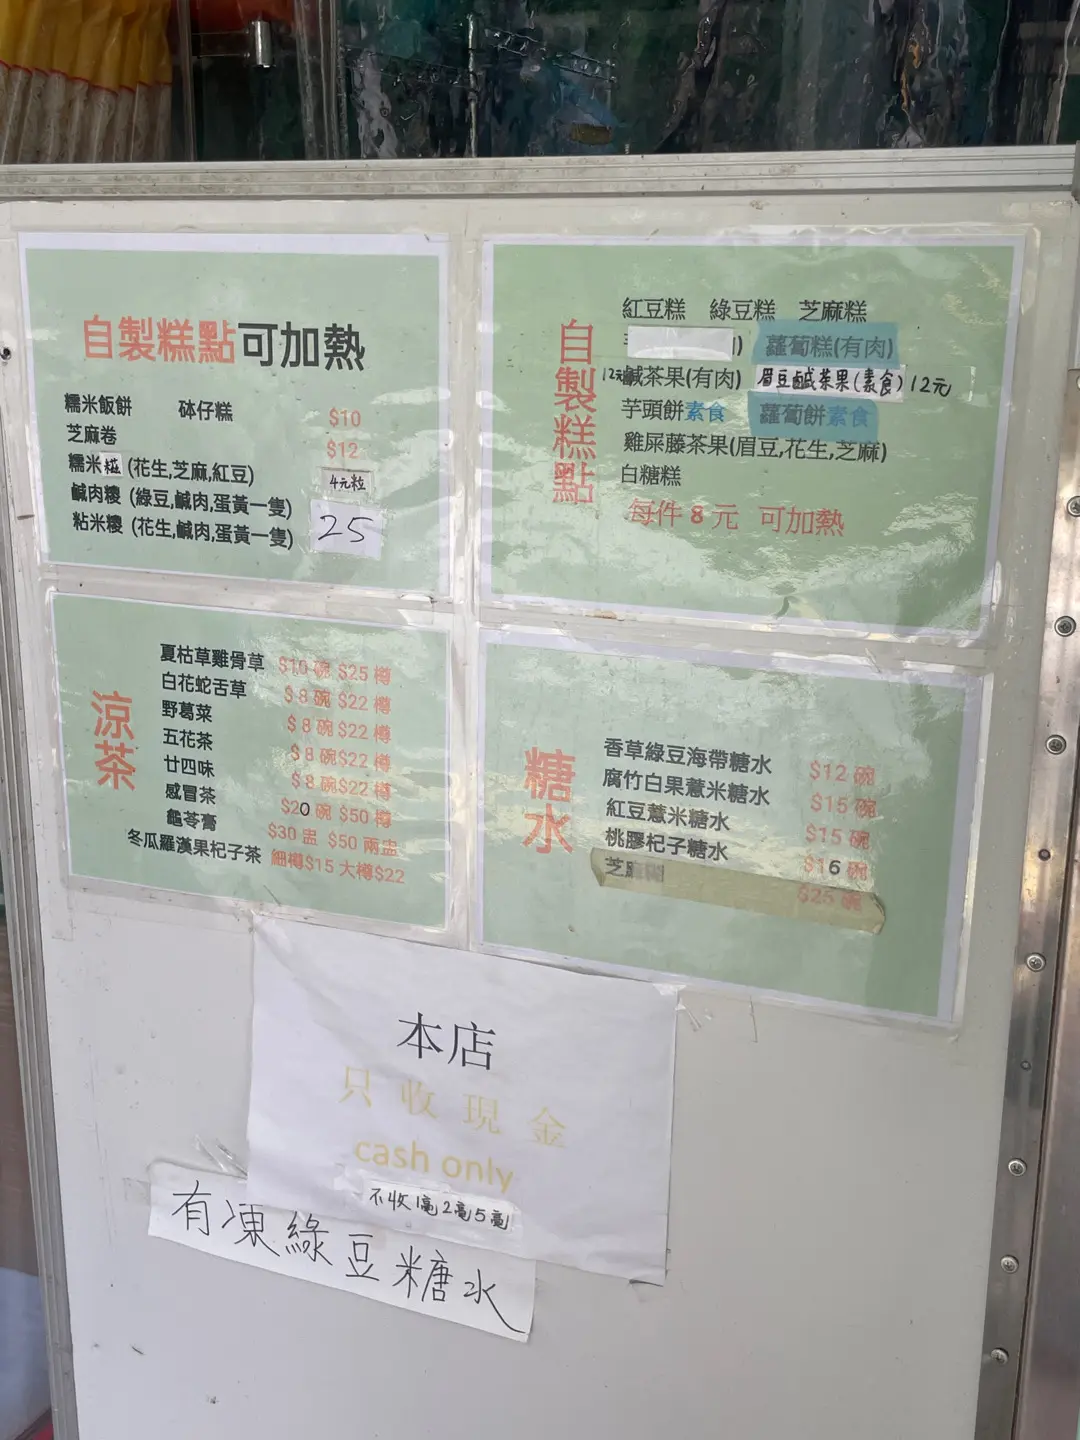 自製糕點可加熱
糯米飯餅 砵仔糕 $10
芝麻卷 $12
糯米糍 (花生,芝麻,紅豆) 4元粒
鹹肉糉 (綠豆,鹹肉,蛋黃一隻)
粘米糉 (花生,鹹肉,蛋黃一隻) 25
自製糕點
紅豆糕 綠豆糕 芝麻糕
蘿蔔糕(有肉)
12元鹹茶果(有肉) 眉豆鹹茶果(素食)12元
芋頭餅素食 蘿蔔餅素食
雞屎藤茶果(眉豆,花生,芝麻)
白糖糕
每件 8 元 可加熱
涼茶
夏枯草雞骨草 $10 碗 $25 樽
白花蛇舌草 $8 碗 $22 樽
野葛菜 $8 碗 $22 樽
五花茶 $8 碗$22 樽
廿四味 $8 碗$22 樽
感冒茶 $20 碗 $50 樽
龜苓膏 $30 盅 $50 兩盅
冬瓜羅漢果杞子茶 細樽$15 大樽$22
糖水
香草綠豆海帶糖水 $12 碗
腐竹白果薏米糖水 $15 碗
紅豆薏米糖水 $15 碗
桃膠杞子糖水 $16 碗
芝麻 $25 碗
本店
只收現金
cash only
不收1毫2毫5毫
有凍綠豆糖水